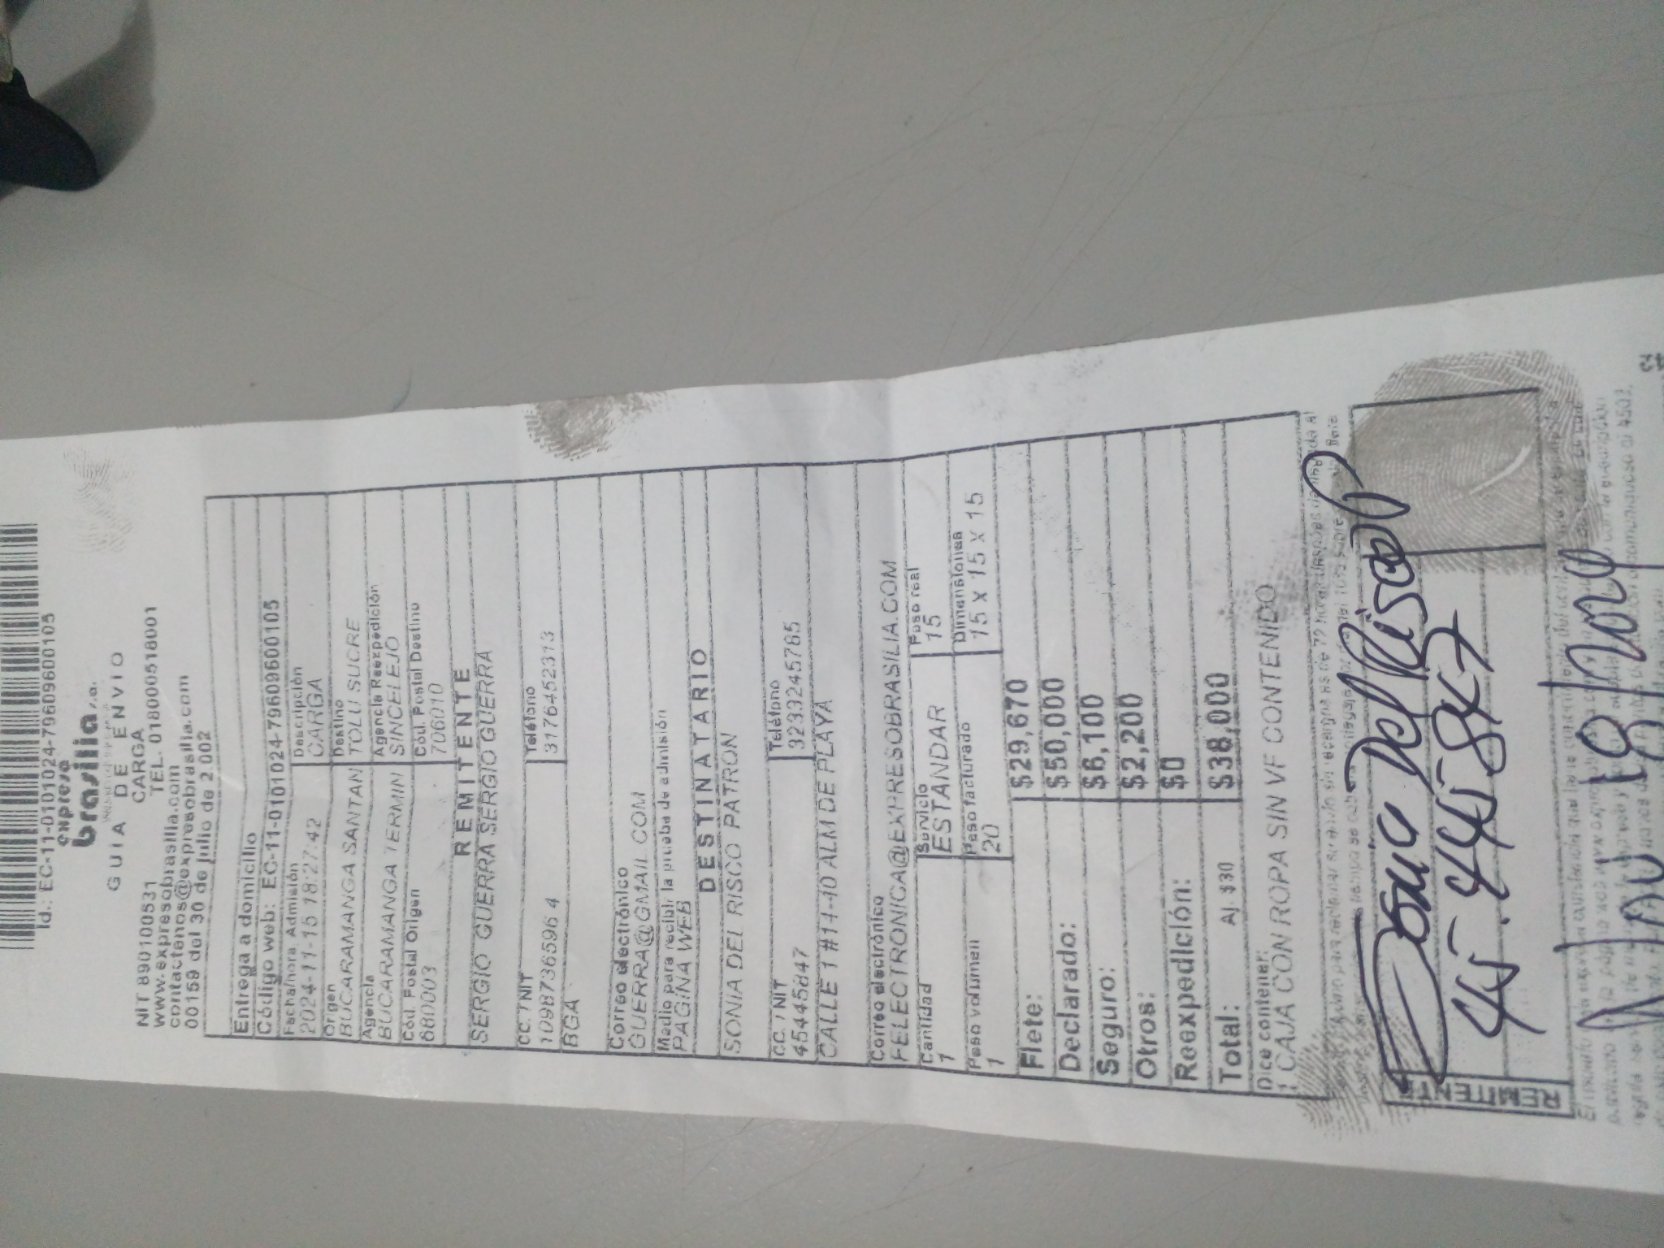 Id.: EC-11-0101024-7960960105
expreso
brasilia s.a.
GUIA DE ENVIO
CARGA
NIT 890100531 TEL. 018000518001
www.expresobrasilia.com
contactenos@expresobrasilia.com
00159 del 30 de julio de 2.002
Entrega a domicilio
Código web: EC-11-0101024-7960960105
Fecha/hora Admisión Descripción
2024-11-15 18:27:42 CARGA
Origen Destino
BUCARAMANGA SANTAN TOLU SUCRE
Agencia Agencia Reexpedición
BUCARAMANGA TERMIN SINCELEJO
Cód. Postal Origen Cód. Postal Destino
680003 706010
REMITENTE
SERGIO GUERRA SERGIO GUERRA
CC. / NIT Teléfono
1098736596 4 3176452313
BGA
Correo electrónico
GUERRA@GMAIL.COM
Medio para recibir la prueba de admisión
PAGINA WEB
DESTINATARIO
SONIA DEL RISCO PATRON
CC. / NIT Teléfono
45445847 3233245765
CALLE 1 #11-10 ALM DE PLAYA
Correo electrónico
FELECTRONICA@EXPRESOBRASILIA.COM
Cantidad Servicio Peso real
1 ESTANDAR 15
Peso volumen Peso facturado Dimensiones
1 20 15 x 15 x 15
Flete: $29,670
Declarado: $50,000
Seguro: $6,100
Otros: $2,200
Reexpedición: $0
Total: Aj. $30 $38,000
Dice contener:
1 CAJA CON ROPA SIN VF CONTENIDO
Sonia Del Risco P
45.445847
REMITENTE